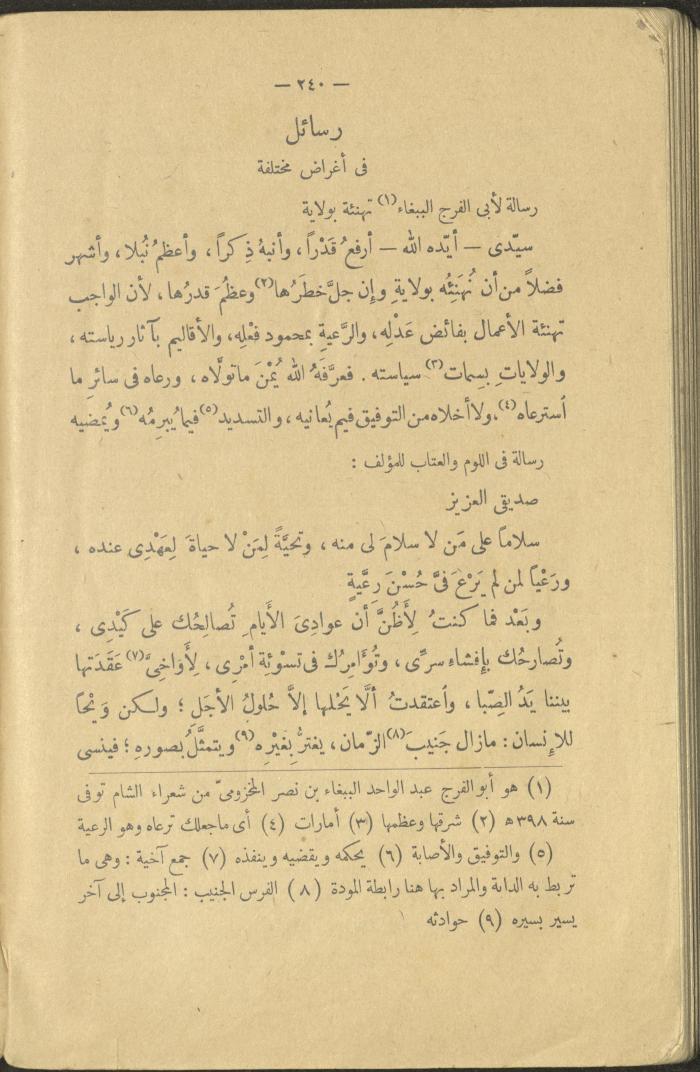 — ٢٤٠ —
رسائل
فى أغراض مختلفة
رسالة لأبى الفرج الببغاء(١) تهنئة بولاية
سيّدى — أيّده الله — أرفعُ قَدْراً، وأنبهُ ذِكراً، وأعظمُ نُبلا، وأشهر
فضلاً من أن نُهَنِّئُه بولايةٍ وإن جلَّ خطَرُها(٢) وعظُمَ قدرُها، لأن الواجب
تهنئة الأعمال بفائض عَدْلِه، والرَّعيةِ بمحمود فعْلِه، والأقاليم بآثار رياسته،
والولاياتِ بسِمات(٣) سياسته. فعرَّفَهُ الله يُمْنَ ماتولّاه، ورعاه فى سائرِ ما
اُسترعاه(٤)، ولا أخلاه من التوفيق فيم يُعانيه، والتسديد(٥) فيما يُبرِمُه(٦) ويُمضيه
رسالة فى اللوم والعتاب للمؤلف :
صديقى العزيز
سلاماً على مَن لا سلامَ لى منه، وتحيَّةً لِمَنْ لا حياةَ لِعَهْدِى عنده،
ورَعْياً لمن لم يَرْعَ فىَّ حُسْنَ رعَّيةٍ
وبَعْد فما كنتُ لِأَظُنَّ أن عوادِىَ الأيام تُصالِحُك على كَيْدِى،
وتُصارحُك بإِفشاءِ سرِّى، وتُوَّامِرُك فى تسْوئة أمْرِى، لِأَواخِىَّ(٧) عَقَدَتها
بيننا يَدُ الصِّبا، واُعتقدتُ ألَّا يَحُلها إلاَّ حُلولُ الأجَلِ ؛ ولكن وَيْحاً
للإنسان : مازال جَنيبَ(٨) الزّمان، يغترُّ بِغيْرِه(٩) ويتمثَّلُ بصورهِ ؛ فينسى
(١) هو أبو الفرج عبد الواحد الببغاء بن نصر المخزومىّ من شعراء الشام توفى
سنة ٣٩٨ھ (٢) شرقها وعظمها (٣) أمارات (٤) أى ماجعلك ترعاه وهو الرعية
(٥) والتوفيق والأصابة (٦) يحكمه ويقضيه وينفذه (٧) جمع آخية : وهى ما
تربط به الدابة والمراد بها هنا رابطة المودة (٨) الفرس الجنيب : المجنوب إلى آخر
يسير بسيره (٩) حوادثه